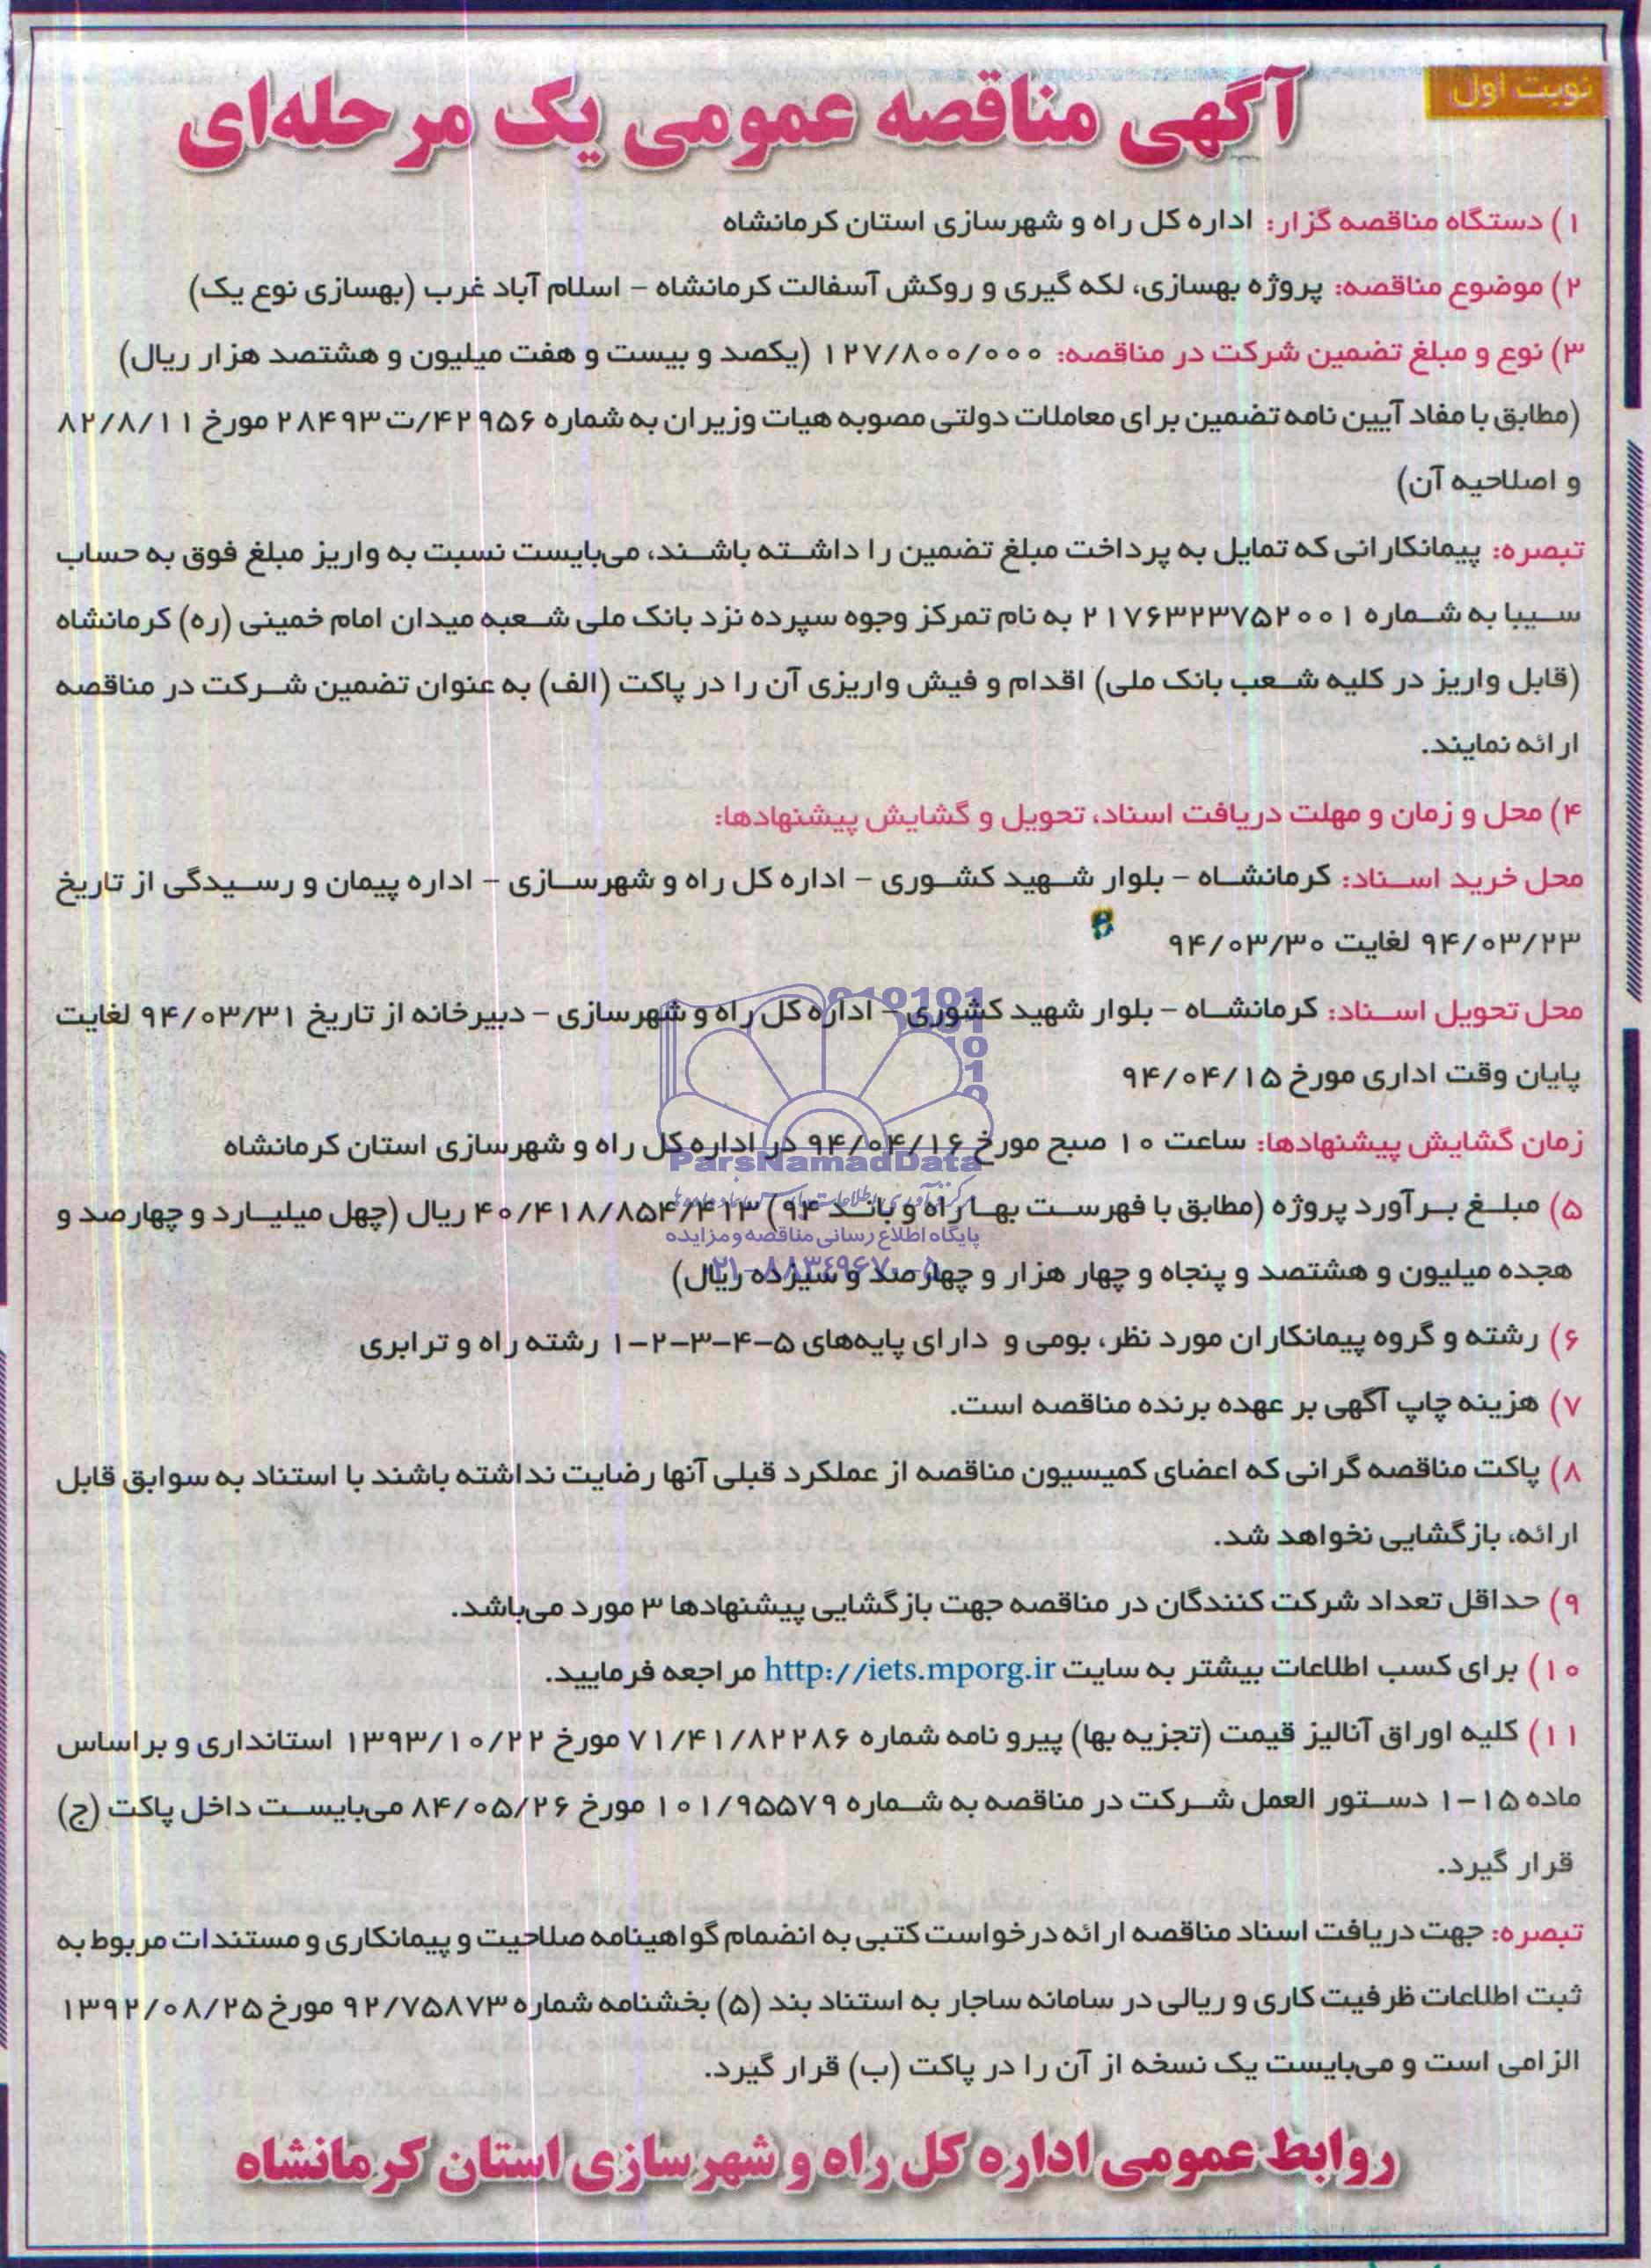 نوبت اول
آگهی مناقصه عمومی یک مرحله‌ای
۱) دستگاه مناقصه گزار: اداره کل راه و شهرسازی استان کرمانشاه
۲) موضوع مناقصه: پروژه بهسازی، لکه گیری و روکش آسفالت کرمانشاه – اسلام آباد غرب (بهسازی نوع یک)
۳) نوع و مبلغ تضمین شرکت در مناقصه: ۱۲۷/۸۰۰/۰۰۰ (یکصد و بیست و هفت میلیون و هشتصد هزار ریال)
(مطابق با مفاد آیین نامه تضمین برای معاملات دولتی مصوبه هیات وزیران به شماره ۴۲۹۵۶/ت۲۸۴۹۳ مورخ ۸۲/۸/۱۱
و اصلاحیه آن)
تبصره: پیمانکارانی که تمایل به پرداخت مبلغ تضمین را داشته باشند، می‌بایست نسبت به واریز مبلغ فوق به حساب
سیبا به شماره ۲۱۷۶۳۲۳۷۵۲۰۰۱ به نام تمرکز وجوه سپرده نزد بانک ملی شعبه میدان امام خمینی (ره) کرمانشاه
(قابل واریز در کلیه شعب بانک ملی) اقدام و فیش واریزی آن را در پاکت (الف) به عنوان تضمین شرکت در مناقصه
ارائه نمایند.
۴) محل و زمان و مهلت دریافت اسناد، تحویل و گشایش پیشنهادها:
محل خرید اسناد: کرمانشاه – بلوار شهید کشوری – اداره کل راه و شهرسازی – اداره پیمان و رسیدگی از تاریخ
۹۴/۰۳/۲۳ لغایت ۹۴/۰۳/۳۰
محل تحویل اسناد: کرمانشاه – بلوار شهید کشوری – اداره کل راه و شهرسازی – دبیرخانه از تاریخ ۹۴/۰۳/۳۱ لغایت
پایان وقت اداری مورخ ۹۴/۰۴/۱۵
زمان گشایش پیشنهادها: ساعت ۱۰ صبح مورخ ۹۴/۰۴/۱۶ در اداره کل راه و شهرسازی استان کرمانشاه
ParsNamadData
۵) مبلغ برآورد پروژه (مطابق با فهرست بهاء راه و باند ۹۴) ۴۰/۴۱۸/۸۵۴/۴۱۳ ریال (چهل میلیارد و چهارصد و
پایگاه اطلاع رسانی مناقصه و مزایده
هجده میلیون و هشتصد و پنجاه و چهار هزار و چهارصد و سیزده ریال)
۰۲۱-۸۸۳۴۹۶۷۰-۵
۶) رشته و گروه پیمانکاران مورد نظر، بومی و دارای پایه‌های ۵-۴-۳-۲-۱ رشته راه و ترابری
۷) هزینه چاپ آگهی بر عهده برنده مناقصه است.
۸) پاکت مناقصه گرانی که اعضای کمیسیون مناقصه از عملکرد قبلی آنها رضایت نداشته باشند با استناد به سوابق قابل
ارائه، بازگشایی نخواهد شد.
۹) حداقل تعداد شرکت کنندگان در مناقصه جهت بازگشایی پیشنهادها ۳ مورد می‌باشد.
۱۰) برای کسب اطلاعات بیشتر به سایت http://iets.mporg.ir مراجعه فرمایید.
۱۱) کلیه اوراق آنالیز قیمت (تجزیه بها) پیرو نامه شماره ۷۱/۴۱/۸۲۲۸۶ مورخ ۱۳۹۳/۱۰/۲۲ استانداری و براساس
ماده ۱۵-۱ دستور العمل شرکت در مناقصه به شماره ۱۰۱/۹۵۵۷۹ مورخ ۸۴/۰۵/۲۶ می‌بایست داخل پاکت (ج)
قرار گیرد.
تبصره: جهت دریافت اسناد مناقصه ارائه درخواست کتبی به انضمام گواهینامه صلاحیت و پیمانکاری و مستندات مربوط به
ثبت اطلاعات ظرفیت کاری و ریالی در سامانه ساجار به استناد بند (۵) بخشنامه شماره ۹۲/۷۵۸۷۳ مورخ ۱۳۹۲/۰۸/۲۵
الزامی است و می‌بایست یک نسخه از آن را در پاکت (ب) قرار گیرد.
روابط عمومی اداره کل راه و شهرسازی استان کرمانشاه